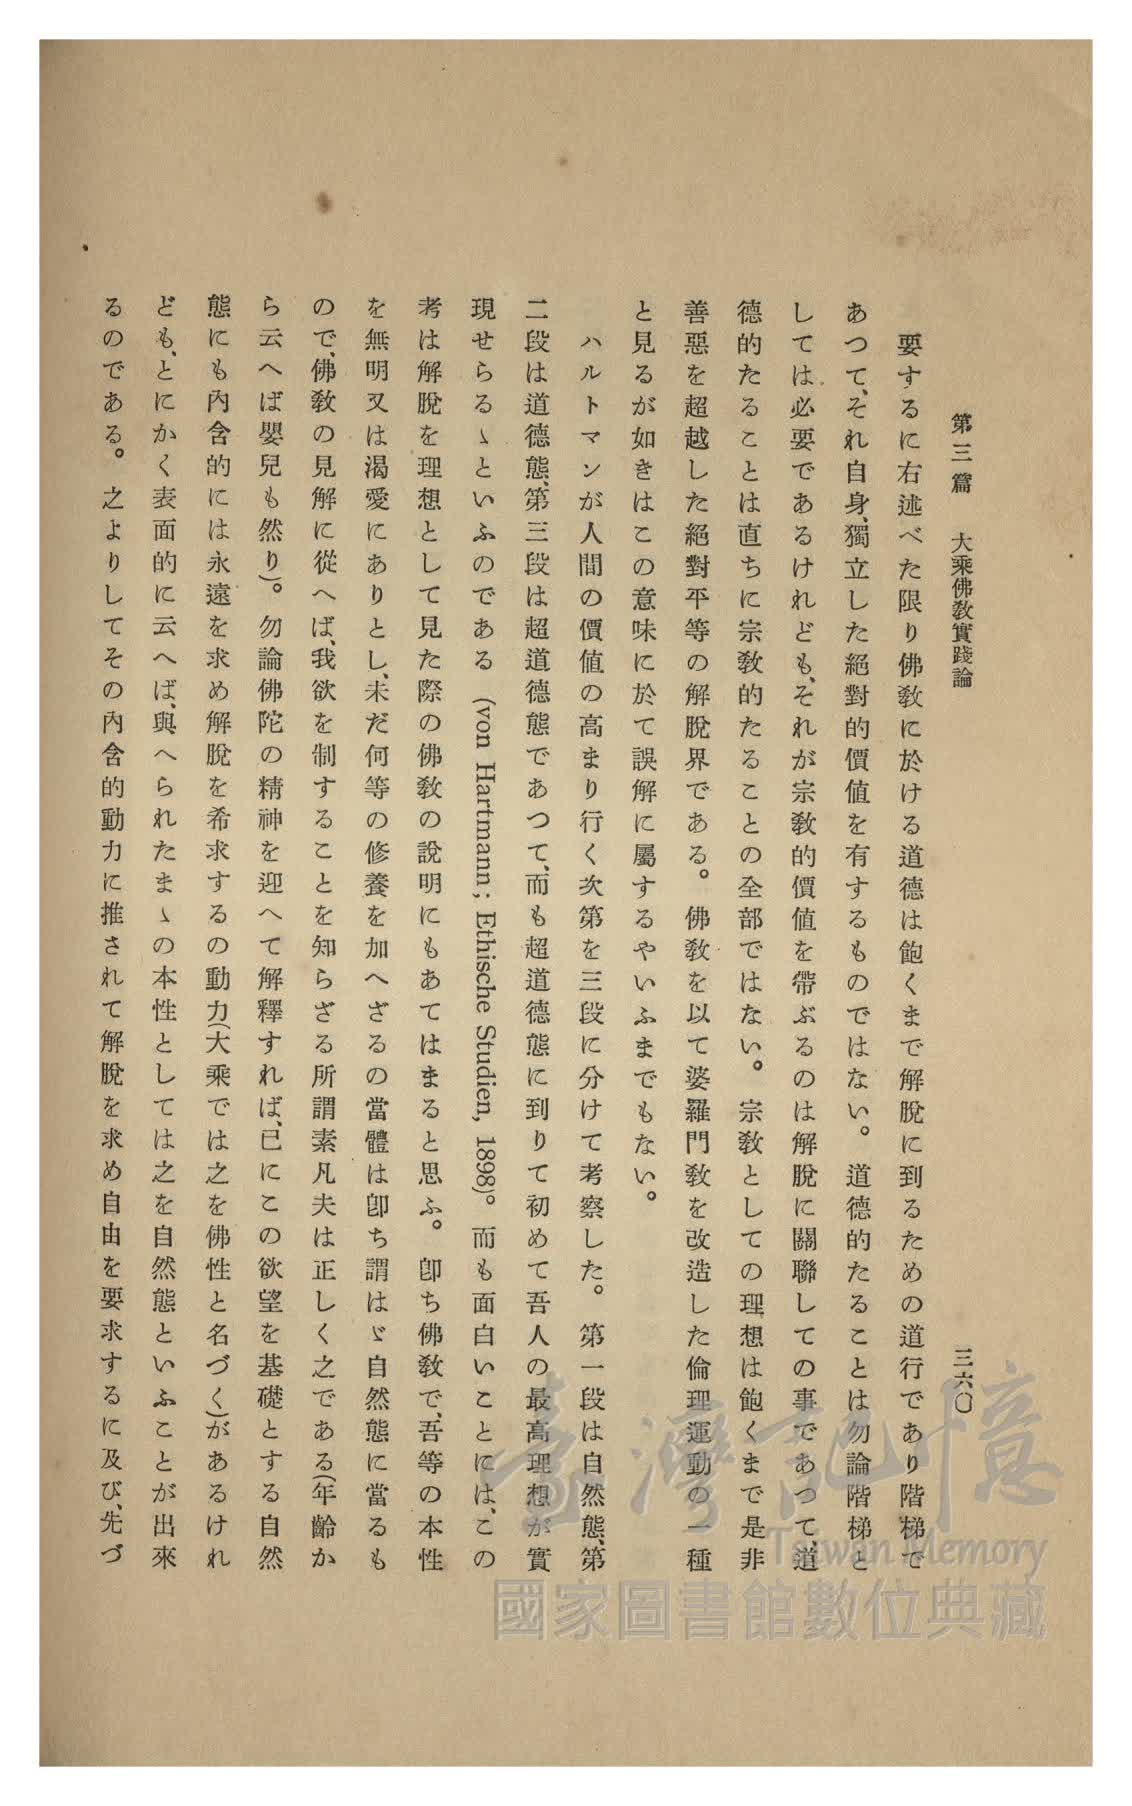 第三篇　大乘佛敎實踐論　三六〇
要するに右述べた限り佛敎に於ける道德は飽くまで解脫に到るための道行であり階梯で
あつて、それ自身、獨立した絕對的價値を有するものではない。道德的たることは勿論階梯と
しては必要であるけれども、それが宗敎的價値を帶ぶるのは解脫に關聯しての事であつて、道
德的たることは直ちに宗敎的たることの全部ではない。宗敎としての理想は飽くまで是非
善惡を超越した絕對平等の解脫界である。佛敎を以て婆羅門敎を改造した倫理運動の一種
と見るが如きはこの意味に於て誤解に屬するやいふまでもない。
ハルトマンが人間の價値の高まり行く次第を三段に分けて考察した。第一段は自然態、第
二段は道德態、第三段は超道德態であつて、而も超道德態に到りて初めて吾人の最高理想が實
現せらるゝといふのである (von Hartmann; Ethische Studien, 1898)。而も面白いことには、この
考は解脫を理想として見た際の佛敎の說明にもあてはまると思ふ。卽ち佛敎で、吾等の本性
を無明又は渴愛にありとし、未だ何等の修養を加へざるの當體は卽ち謂はゞ自然態に當るも
ので、佛敎の見解に從へば、我欲を制することを知らざる所謂素凡夫は正しく之である(年齡か
ら云へば嬰兒も然り)。勿論佛陀の精神を迎へて解釋すれば、已にこの欲望を基礎とする自然
態にも內含的には永遠を求め解脫を希求するの動力(大乘では之を佛性と名づく)があるけれ
ども、とにかく表面的に云へば、與へられたまゝの本性としては之を自然態といふことが出來
るのである。之よりしてその內含的動力に推されて解脫を求め自由を要求するに及び、先づ
臺灣記憶
Taiwan Memory
國家圖書館數位典藏